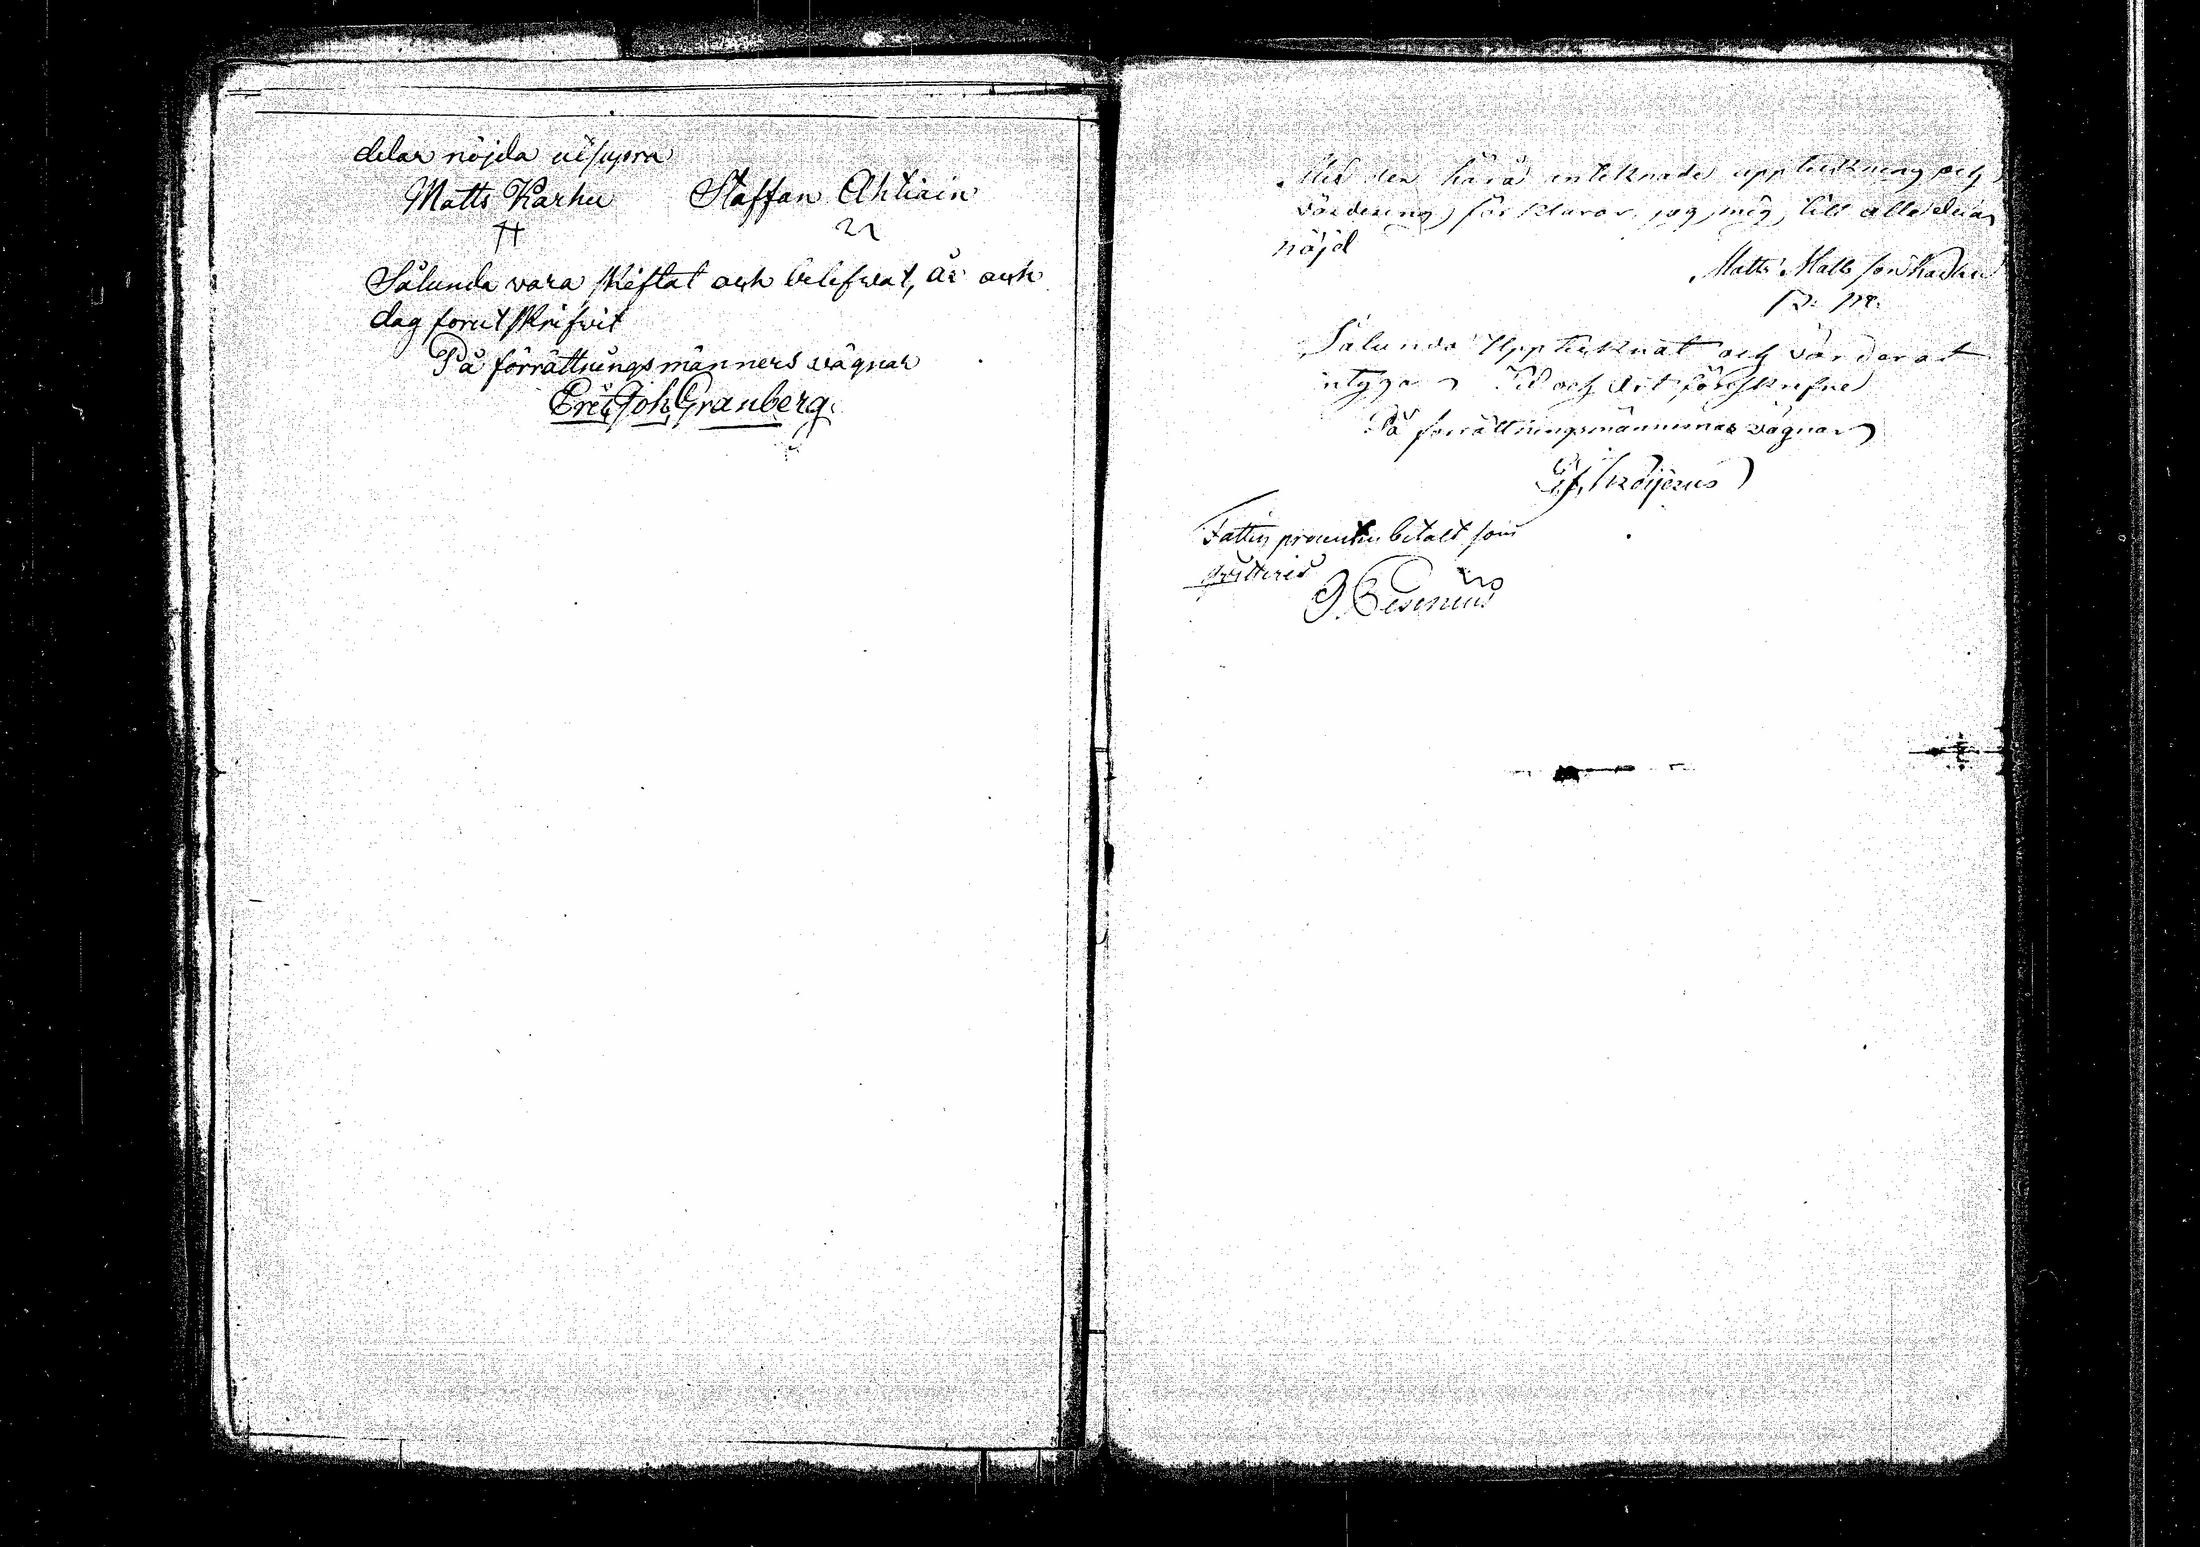 delar nöjda utsupra
Matts Karhu Staffan Ahtiain
Sålunda vara skiftat och blifwat, år och
dag forutskrifwit
På förrättningsmänners wägnar
Eric Joh Granberg
Med den härå anteknade uppteckning och
värdering förklarar jag mig till alla delar
nöjd
Matts Matsson Karhu
Sålunda Upptecknat och värderat
intygar Tid och Ort föreskrefne
På forrättningsmännernas vägnar
Fattig procenten betalt som
qvitteras